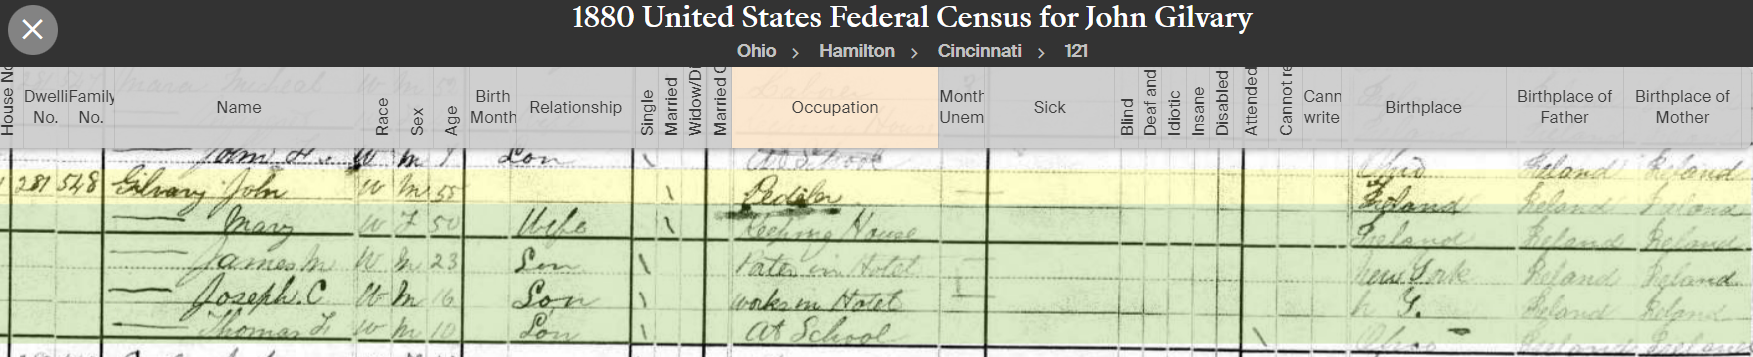 1880 United States Federal Census for John Gilvary
Ohio > Hamilton > Cincinnati > 121
House No Dwelli No. Family No. Name Race Sex Age Birth Month Relationship Single Married Widow/Di Married C Occupation Month Unem Sick Blind Deaf and Idiotic Insane Disabled Attended Cannot re Cann write Birthplace Birthplace of Father Birthplace of Mother
John H. W M 9 Son \ At School Ohio Ireland Ireland
281 548 Gilvary John W M 55 \ Pedler Ireland Ireland Ireland
Mary W F 50 Wife \ Keeping House Ireland Ireland Ireland
James M W M 23 Son \ in Hotel New York Ireland Ireland
Joseph. C W M 16 Son \ works in Hotel Ireland Ireland
Thomas F. W M 10 Son \ At School \ Ohio Ireland Ireland